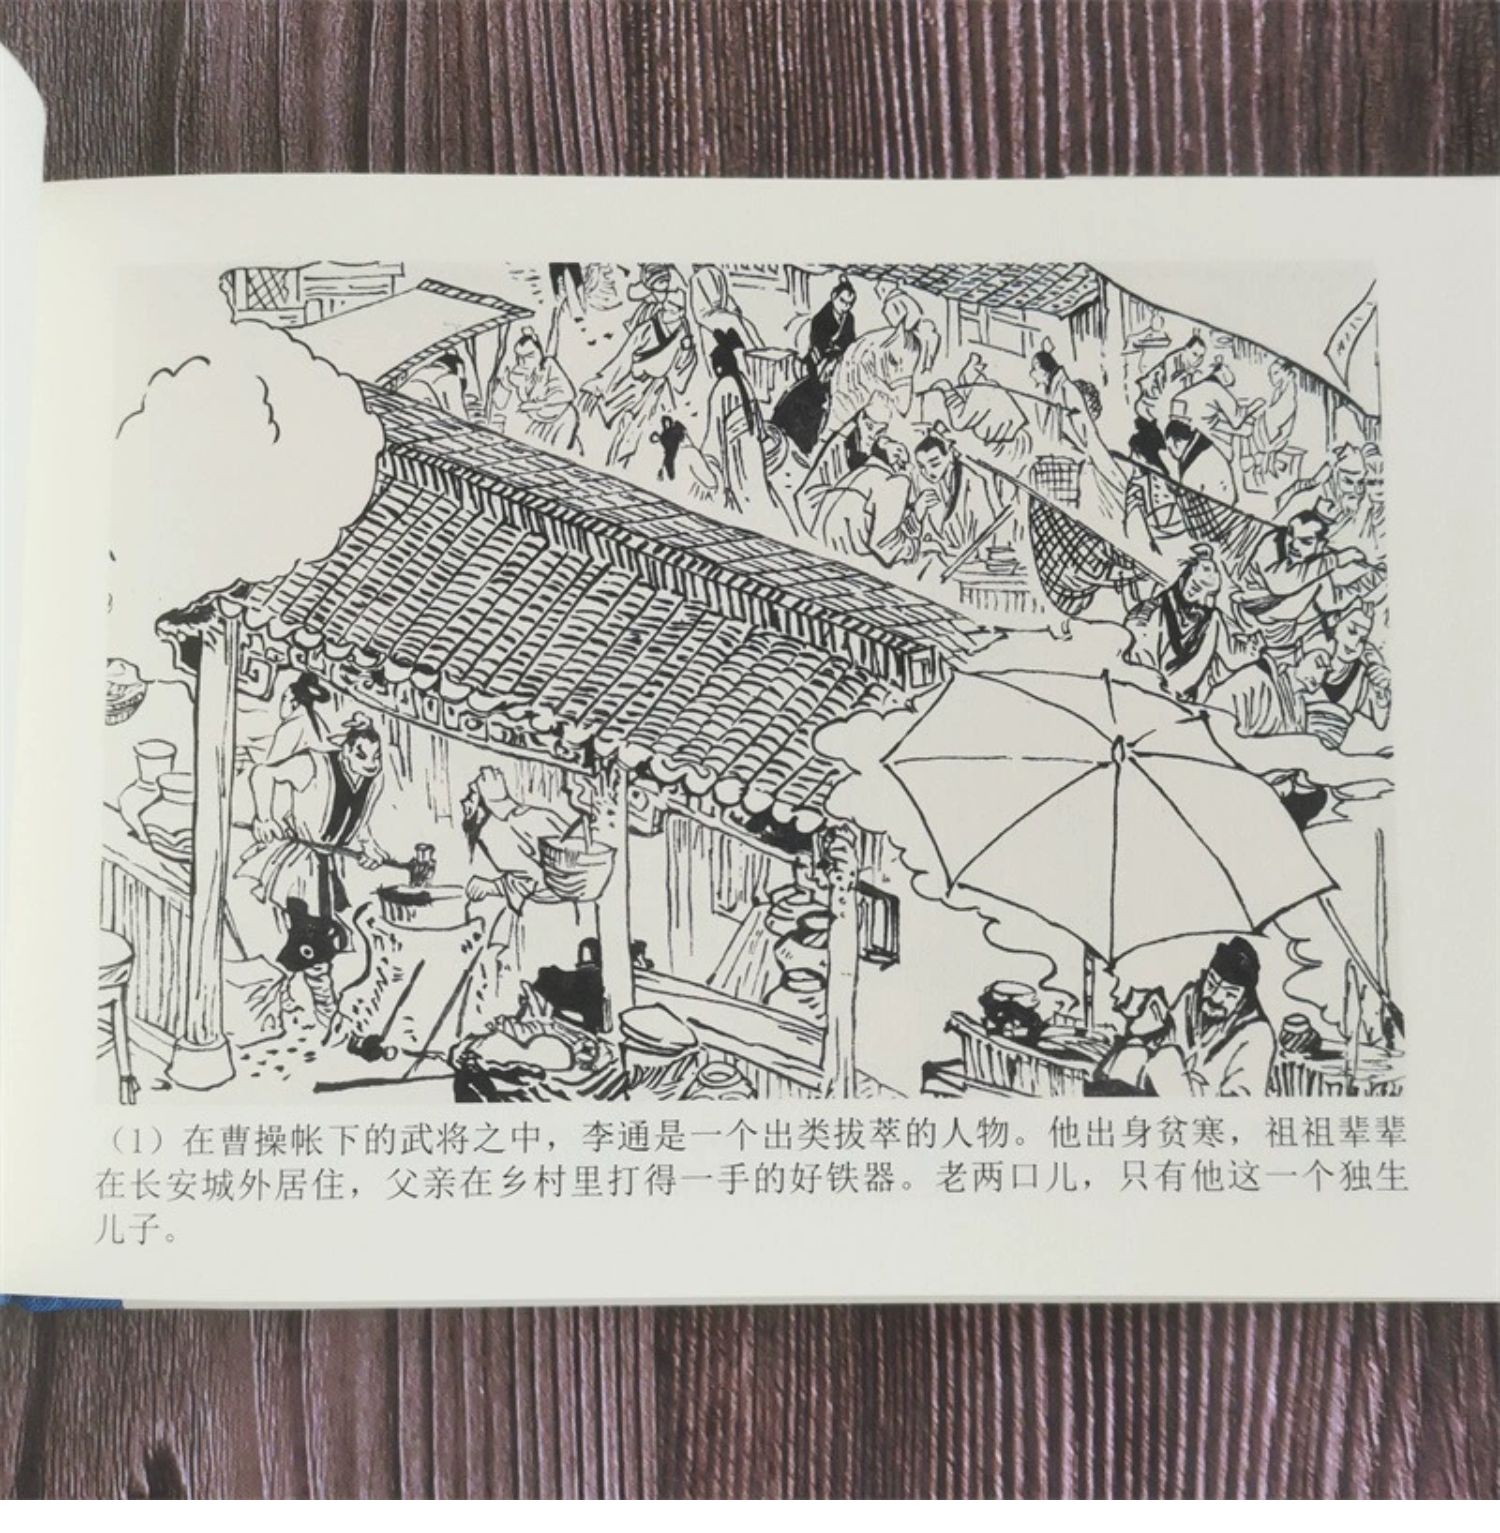 （1）在曹操帐下的武将之中，李通是一个出类拔萃的人物。他出身贫寒，祖祖辈辈
在长安城外居住，父亲在乡村里打得一手的好铁器。老两口儿，只有他这一个独生
儿子。